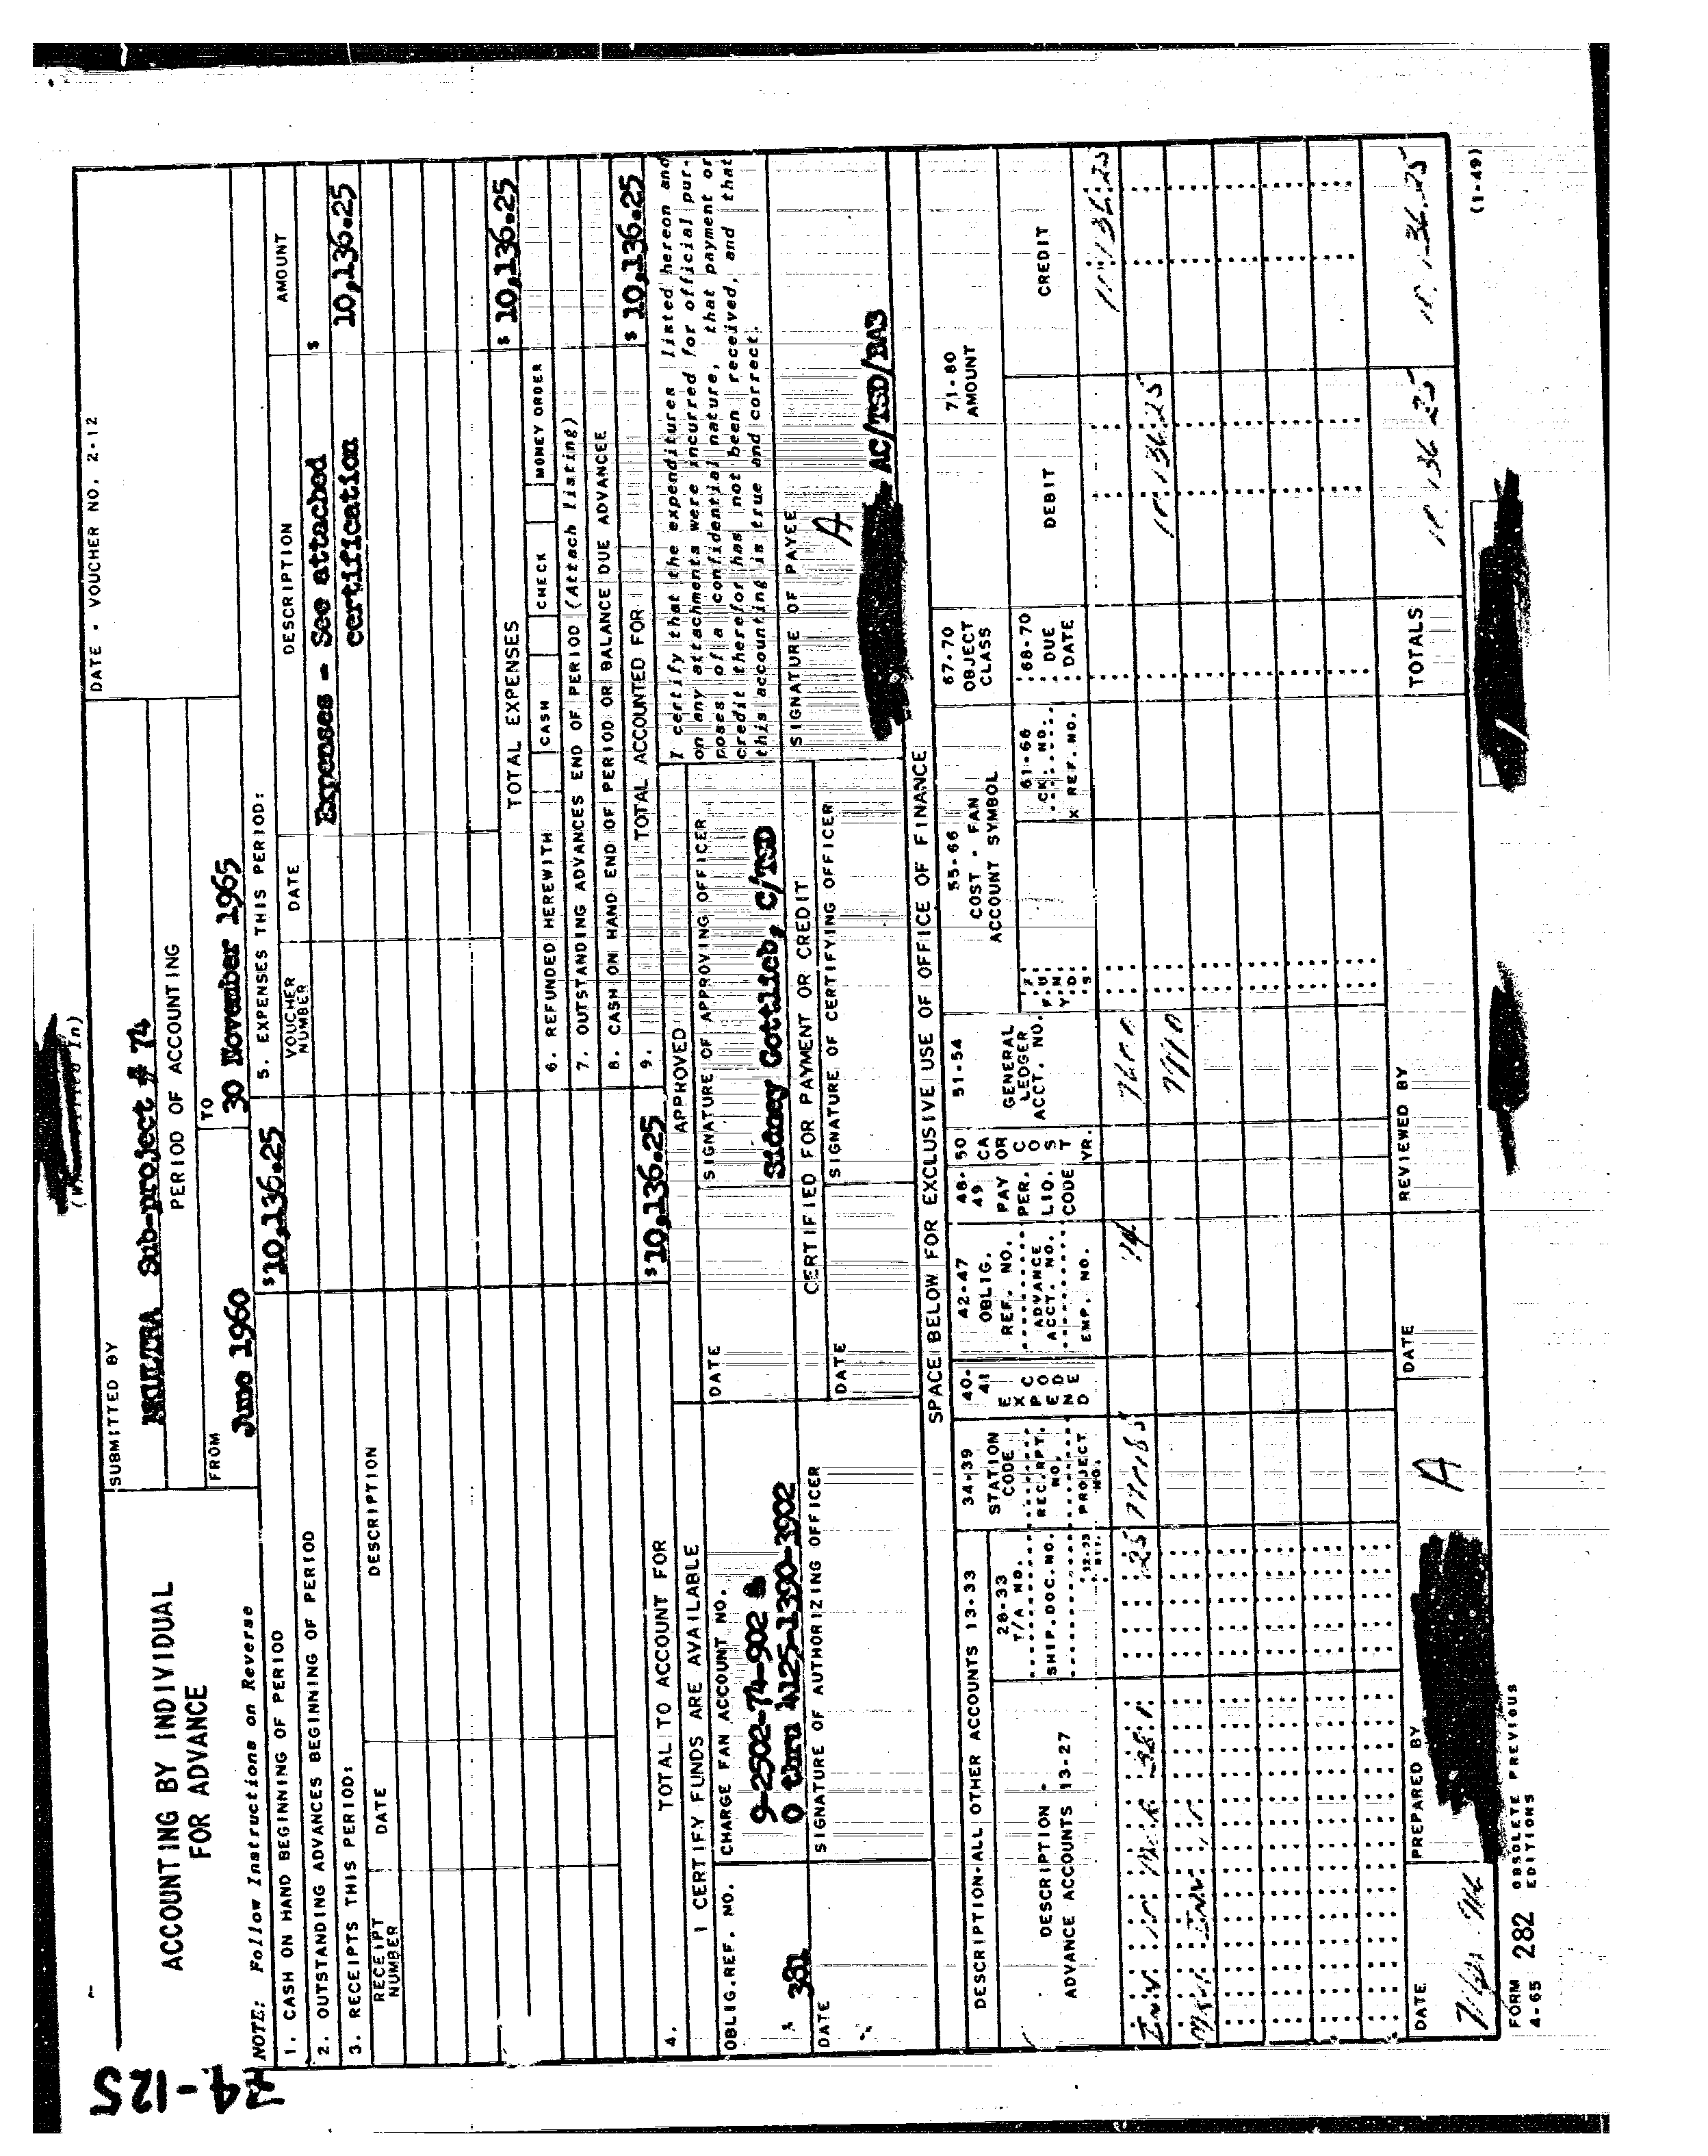 74-125
(When Filled In)
ACCOUNTING BY INDIVIDUAL
FOR ADVANCE
SUBMITTED BY
MKULTRA Sub-project # 74
PERIOD OF ACCOUNTING
FROM
June 1960
TO
30 November 1965
DATE - VOUCHER NO. 2-12
NOTE: Follow Instructions on Reverse
1. CASH ON HAND BEGINNING OF PERIOD
$10,136.25
2. OUTSTANDING ADVANCES BEGINNING OF PERIOD
3. RECEIPTS THIS PERIOD:
RECEIPT NUMBER
DATE
DESCRIPTION
5. EXPENSES THIS PERIOD:
VOUCHER NUMBER
DATE
DESCRIPTION
AMOUNT
Expenses - See attached
$
certification
10,136.25
TOTAL EXPENSES
$ 10,136.25
6. REFUNDED HEREWITH
CASH
CHECK
MONEY ORDER
7. OUTSTANDING ADVANCES END OF PERIOD (Attach listing)
8. CASH ON HAND END OF PERIOD OR BALANCE DUE ADVANCEE
4. TOTAL TO ACCOUNT FOR
$10,136.25
9. TOTAL ACCOUNTED FOR
$ 10,136.25
I CERTIFY FUNDS ARE AVAILABLE
OBLIG.REF. NO.
381
CHARGE FAN ACCOUNT NO.
9-2502-74-902 &
0 thru 4125-1390-3902
DATE
SIGNATURE OF AUTHORIZING OFFICER
APPROVED
DATE
SIGNATURE OF APPROVING OFFICER
Sidney Gottlieb, C/TSD
CERTIFIED FOR PAYMENT OR CREDIT
DATE
SIGNATURE OF CERTIFYING OFFICER
I certify that the expenditures listed hereon and
on any attachments were incurred for official pur-
poses of a confidential nature, that payment or
credit therefor has not been received, and that
this accounting is true and correct.
SIGNATURE OF PAYEE
A
AC/TSD/BA3
SPACE BELOW FOR EXCLUSIVE USE OF OFFICE OF FINANCE
DESCRIPTION-ALL OTHER ACCOUNTS 13-33
DESCRIPTION -
ADVANCE ACCOUNTS 13-27
28-33
T/A NO.
SHIP.DOC.NO.
34-39
STATION
CODE
REC.RPT.
NO.
PROJECT
NO.
40-
41
EXPEND
CODE
42-47
OBLIG.
REF. NO.
ADVANCE
ACCT. NO.
EMP. NO.
48-
49
PAY
PER.
LIQ.
CODE
50
CA
OR
COST
YR.
51-54
GENERAL
LEDGER
ACCT. NO.
55-66
COST - FAN
ACCOUNT SYMBOL
61-66
CK. NO.
X REF. NO.
67-70
OBJECT
CLASS
68-70
DUE
DATE
71-80
AMOUNT
DEBIT
CREDIT
74
TOTALS
DATE
PREPARED BY
A
DATE
REVIEWED BY
FORM
4-65
282
OBSOLETE PREVIOUS
EDITIONS
(1-49)